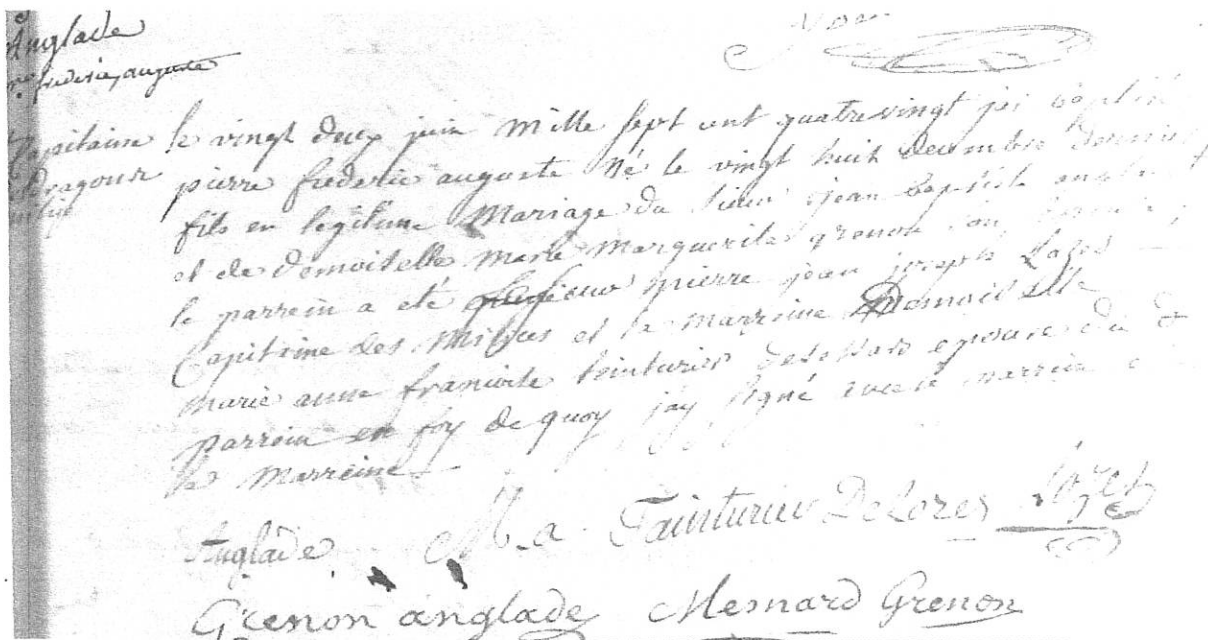 Anglade
frederic, auguste
Capitaine
Dragons
le vingt deux juin mille sept cent quatrevingt jai baptisé
pierre frederic auguste Né le vingt huit decembre dernier
fils en legitime mariage du sieur jean baptiste anglade
et de demoiselle marie marguerite grenon son
le parrein a eté pierre jean joseph Lozes
Capitaine des milices et la marreine Demoiselle
marie anne francoise teinturier Delozes epouse du
parrein en foy de quoy jay signé avec le parrein
la marreine
Anglade M. a Tainturier De Lozes Lozes
Grenon anglade Mesnard Grenon